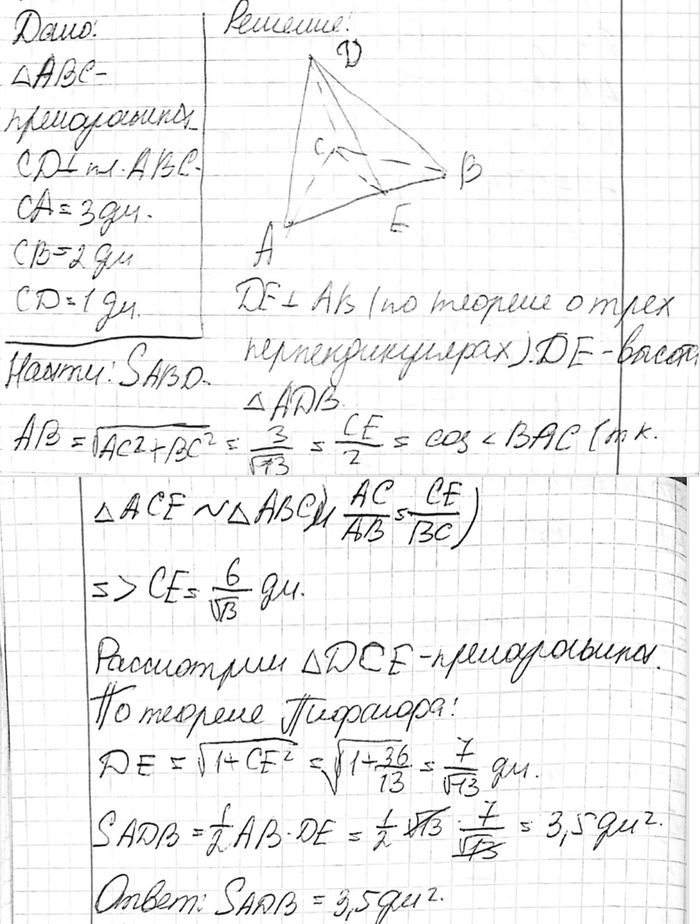 Дано:
△ABC-
прямоугольный
CD⊥пл. ABC.
CA=3дм.
CB=2дм
CD=1дм.
Найти: SABD.
Решение:
D
C
B
A
E
DE⊥AB (по теореме о трех
перпендикулярах). DE-высота
△ADB.
AB = √AC²+BC² = 3/√13 = CE/2 = cos<BAC (т.к.
△ACE ~ △ABC и AC/AB = CE/BC)
=> CE = 6/√13 дм.
Рассмотрим △DCE-прямоугольный.
По теореме Пифагора:
DE = √1+CE² = √1+36/13 = 7/√13 дм.
SADB = 1/2 AB·DE = 1/2 √13 · 7/√13 = 3,5дм².
Ответ: SADB = 3,5дм².